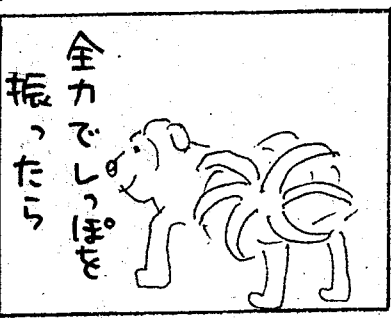 全力でしっぽを
振ったら